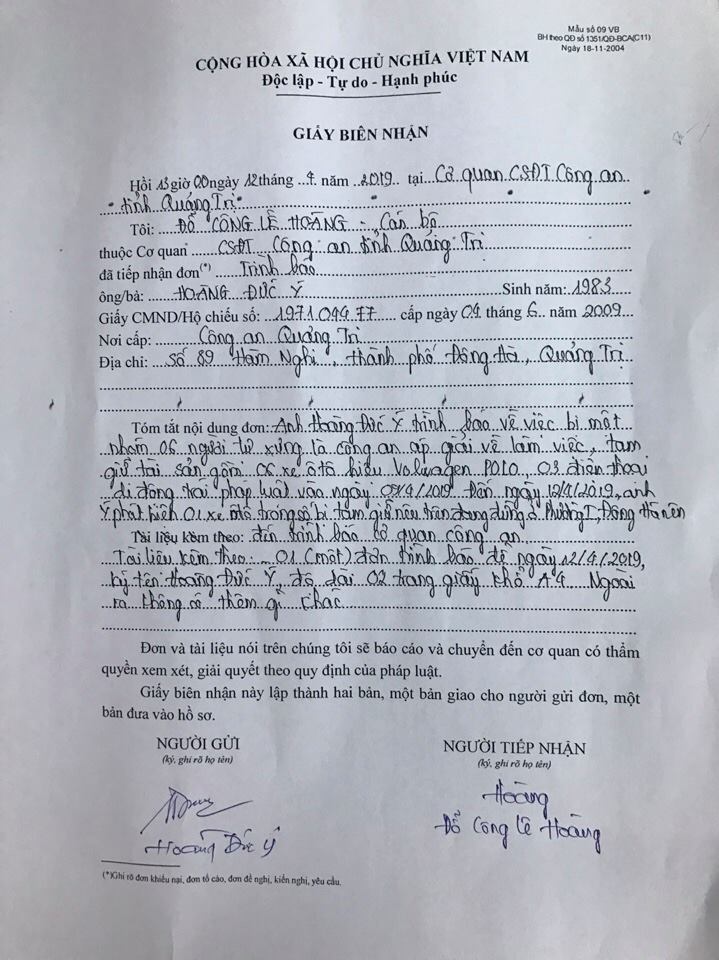 Mẫu số 09 VB
BH theo QĐ số 1351/QĐ-BCA(C11)
Ngày 18-11-2004
CỘNG HÒA XÃ HỘI CHỦ NGHĨA VIỆT NAM
Độc lập - Tự do - Hạnh phúc
GIẤY BIÊN NHẬN
Hồi 13 giờ 00 ngày 12 tháng 4 năm 2019 tại Cơ quan CSĐT Công an
tỉnh Quảng Trị
Tôi: ĐỖ CÔNG LÊ HOÀNG - Cán bộ
thuộc Cơ quan CSĐT Công an tỉnh Quảng Trị
đã tiếp nhận đơn(*) Trình báo
ông/bà: HOÀNG ĐỨC Ý Sinh năm: 1983
Giấy CMND/Hộ chiếu số: 197104977 cấp ngày 04 tháng 6 năm 2009
Nơi cấp: Công an Quảng Trị
Địa chỉ: Số 89 Hàm Nghi, thành phố Đông Hà, Quảng Trị
Tóm tắt nội dung đơn: Anh Hoàng Đức Ý trình báo về việc bị một
nhóm 06 người tự xưng là công an áp giải về làm việc, tạm
giữ tài sản gồm 06 xe ôtô hiệu Volvagen POLO, 03 điện thoại
di động trái pháp luật vào ngày 09/4/2019 Đến ngày 12/4/2019, anh
Ý phát hiện 01 xe ôtô trong số bị tạm giữ nêu trên đang dựng ở Phường I, Đông Hà nên
Tài liệu kèm theo: đến trình báo cơ quan công an
Tài liệu kèm theo: - 01 (một) đơn trình báo đề ngày 12/4/2019,
ký tên Hoàng Đức Ý, độ dài 02 trang giấy khổ A4 Ngoài
ra không có thêm gì khác
Đơn và tài liệu nói trên chúng tôi sẽ báo cáo và chuyển đến cơ quan có thẩm
quyền xem xét, giải quyết theo quy định của pháp luật.
Giấy biên nhận này lập thành hai bản, một bản giao cho người gửi đơn, một
bản đưa vào hồ sơ.
NGƯỜI GỬI NGƯỜI TIẾP NHẬN
(ký, ghi rõ họ tên) (ký, ghi rõ họ tên)
Hoàng
Hoàng Đức Ý Đỗ Công Lê Hoàng
(*)Ghi rõ đơn khiếu nại, đơn tố cáo, đơn đề nghị, kiến nghị, yêu cầu.